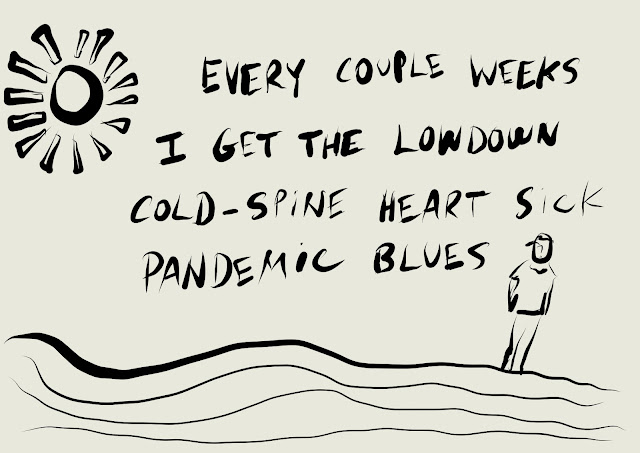 EVERY COUPLE WEEKS
I GET THE LOWDOWN
COLD-SPINE HEART SICK
PANDEMIC BLUES